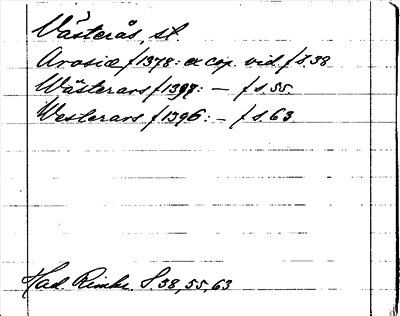 Västerås, st.
Arosiæ f 1378: ex cop. vid. f s. 38
Wästerars f 1397: — f s. 55.
Westerars f 1396: — f s. 63.
Had. Rimbe. S. 38, 55, 63